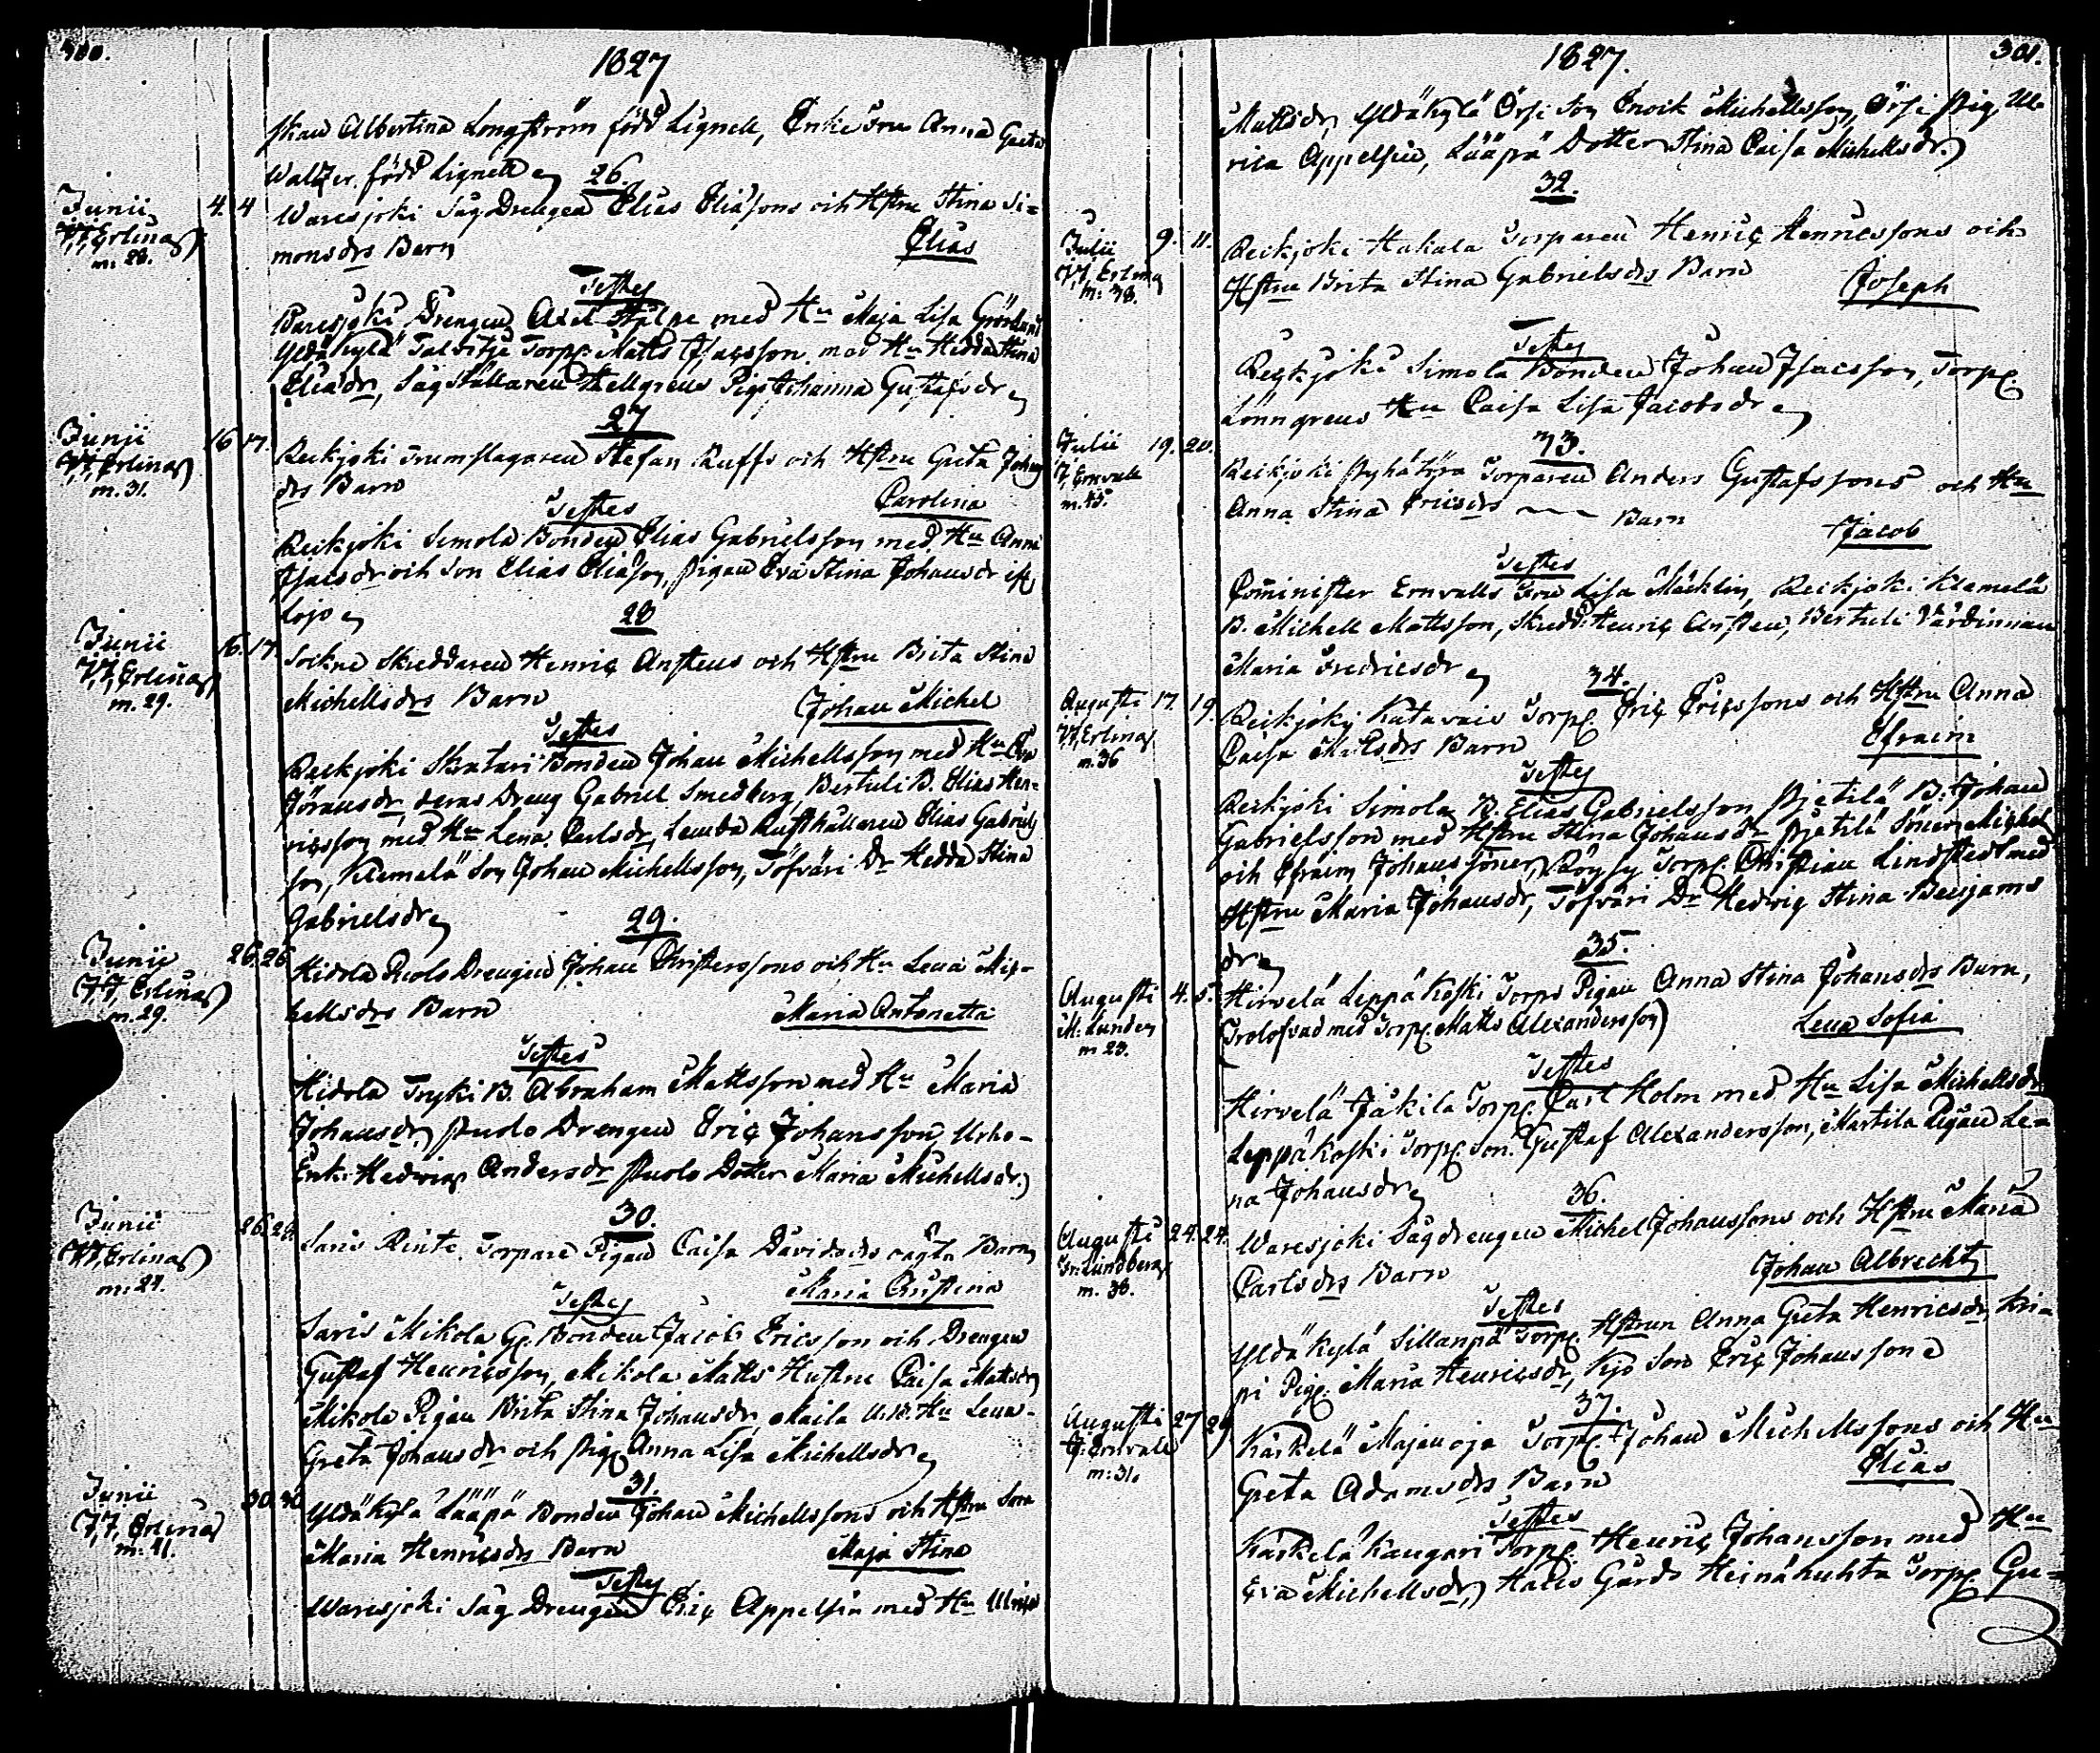 300.
1827
skan Albertina Longström född Lignell, Enke Fru Anna Greta
Waltzer född Lignell
26.
Junii 4. 4 Waresjoki Såg Drengen Elias Eliæsons och Hstru Stina Si=
J. J. Erlinas monsdrs Barn Elias
m: 28.
Testes
Waresjoki Drengen Axel Stålpe med Hu Maja Lisa Grönlund
Yldäkylä Talvitje Torp. Matts Isacsson med Hu Hedda Stina
Eliædr, Sågställaren Hellgrens Pig. Johanna Gustafsdr
27
Junii 16 17. Reikjoki Trumslagaren Stefan Ruffs och Hstru Greta Johans
J. J. Erlinas drs Barn Carolina
m. 31.
Testes
Reikjoki Simola Bonden Elias Gabrielsson med Hu Anna
Isacsdr och Son Elias Eliæson, Pigan Eva Stina Johansdr ifr
Lojo
28
Junii 16. 17. Sockne Skreddaren Henric Anstens och Hstru Brita Stina
J. J. Erlinas Michellsdrs Barn Johan Michel
m. 29.
Testes
Reikjoki Skratari Bonden Johan Michellsson med Hu Eva
Göransdr, deras Dreng Gabriel Smedberg, Bertuli B. Elias Hen=
ricsson med Hu Lena Carlsdr, Lemola Rusthållaren Elias Gabriels
son, Klemelä Son Johan Michellsson, Töfväri Dr Hedda Stina
Gabrielsdr
29.
Junii 26. 26 Hidola Puolo Drengen Johan Christerssons och Hu Lena Mic-
J. J. Erlinas hellsdrs Barn Maria Antonetta
m. 29.
Testes
Hidola Tryki B. Abraham Mattsson med Hu Maria
Johansdr, Puolo Drengen Eric Johansson, Urho-
Enk: Hedvig Andersdr Puolo Dotter Maria Michellsdr.
30.
Junii 26. 28. Saris Rinte Torpare Pigan Caisa Davidsdrs oägta Barn
J. J. Erlinas Maria Christina
m: 27.
Testes
Saris Mikola G. Bonden Jacob Ericsson och Drengen
Gustaf Henricsson, Mikola Matts Hustru Caisa Mattsdr
Mikola Pigan Brita Stina Johansdr, Maila Hu Lena-
Greta Johansdr och Pig. Anna Lisa Michellsdr
31.
Junii 30. 30 Yldäkylä Lääpä Bonden Johan Michellssons och Hstru Sara
J. J. Erlinas Maria Henricsdrs Barn Maja Stina
m: 41.
Testes
Waresjoki Såg Drengen Eric Appelsin med Hu Ulrica
1827.
301.
Mattsdr, Yldäkylä Örsi Son Enock Michellsson, Örsi Pig. Ul-
rica Appelsin, Lääpä Dotter Stina Caisa Michellsdr.
32.
Julii 9. 11. Reikjoki Hakala Torparen Henric Henricssons och
J. J. Erlinas Hstru Brita Stina Gabrielsdrs Barn Joseph
m: 38.
Testes
Reikjoki Simola Bonden Johan Isacsson, Torp.
Lönngrens Hu Caisa Lisa Jacobsdr
33.
Julii 19. 20. Reikjoki Pyhätöyra Torparen Anders Gustafssons och Hu
J. Ernvall Anna Stina Ericsdrs Barn Jacob
m. 45.
Testes
Cominister Ernvalls Fru Lisa Mäcklin, Reikjoki Klemelä
B. Michell Mattsson, Skredd. Henric Ansten, Bertuli Värdinnan
Maria Fredricsdr
34.
Augusti 17. 19. Reikjoki Katavais Torp. Eric Ericssons och Hstru Anna
J. J. Erlinas Caisa Mattsdrs Barn Efraim
m. 36
Testes
Reikjoki Simola B. Elias Gabrielsson Pjetilä B. Johan
Gabrielsson med Hstru Stina Johansdr Pjetilä Söner Michel
och Efraim Johanssöner, Röysy Torp. Christian Lindstedt med
Hstru Maria Johansdr, Töfväri Dr Hedvig Stina Benjams
dr
35.
Augusti 4. 5. Hirvelä Leppäkoski Torps Pigan Anna Stina Johansdrs Barn,
M. Lunden (Trolofvad med Torp. Matts Alexandersson) Lena Sofia
m 23.
Testes
Hirvelä Jäkila Torp. Carl Holm med Hu Lisa Michellsdr
Leppäkoski Torp. Son Gustaf Alexandersson, Martila Pigan Le-
na Johansdr
36.
Augusti 24. 24. Waresjoki Sågdrengen Michel Johanssons och Hstru Maria
Fr: Lindberg Carlsdrs Barn Johan Albrecht
m. 36.
Testes
Yldäkylä Sillanpä Torp. Hstrun Anna Greta Henricsdr, Kri-
pi Pig. Maria Henricsdr, Kyö Son Eric Johansson
37.
Augusti 27 29 Kärkelä Majanoja Torp. Johan Michellssons och Hu
J. Ernvall Greta Adamsdrs Barn Elias
m: 31.
Testes
Kärkelä Kangari Torp. Henric Johansson med Hu
Eva Michellsdr, Haris Gårds Heinähuhta Torp. Gu-